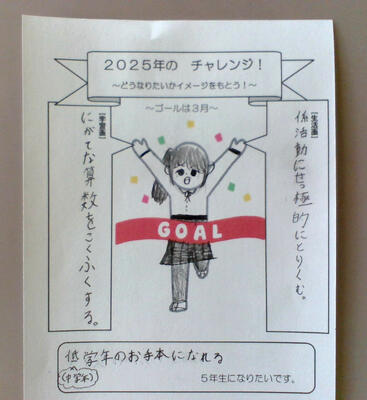 2025年の チャレンジ！
～どうなりたいかイメージをもとう！～
～ゴールは3月～
【生活面】
係活動にせっ極的にとりくむ。
【学習面】
にがてな算数をこくふくする。
GOAL
低学年のお手本になれる
(中学年)
5年生になりたいです。